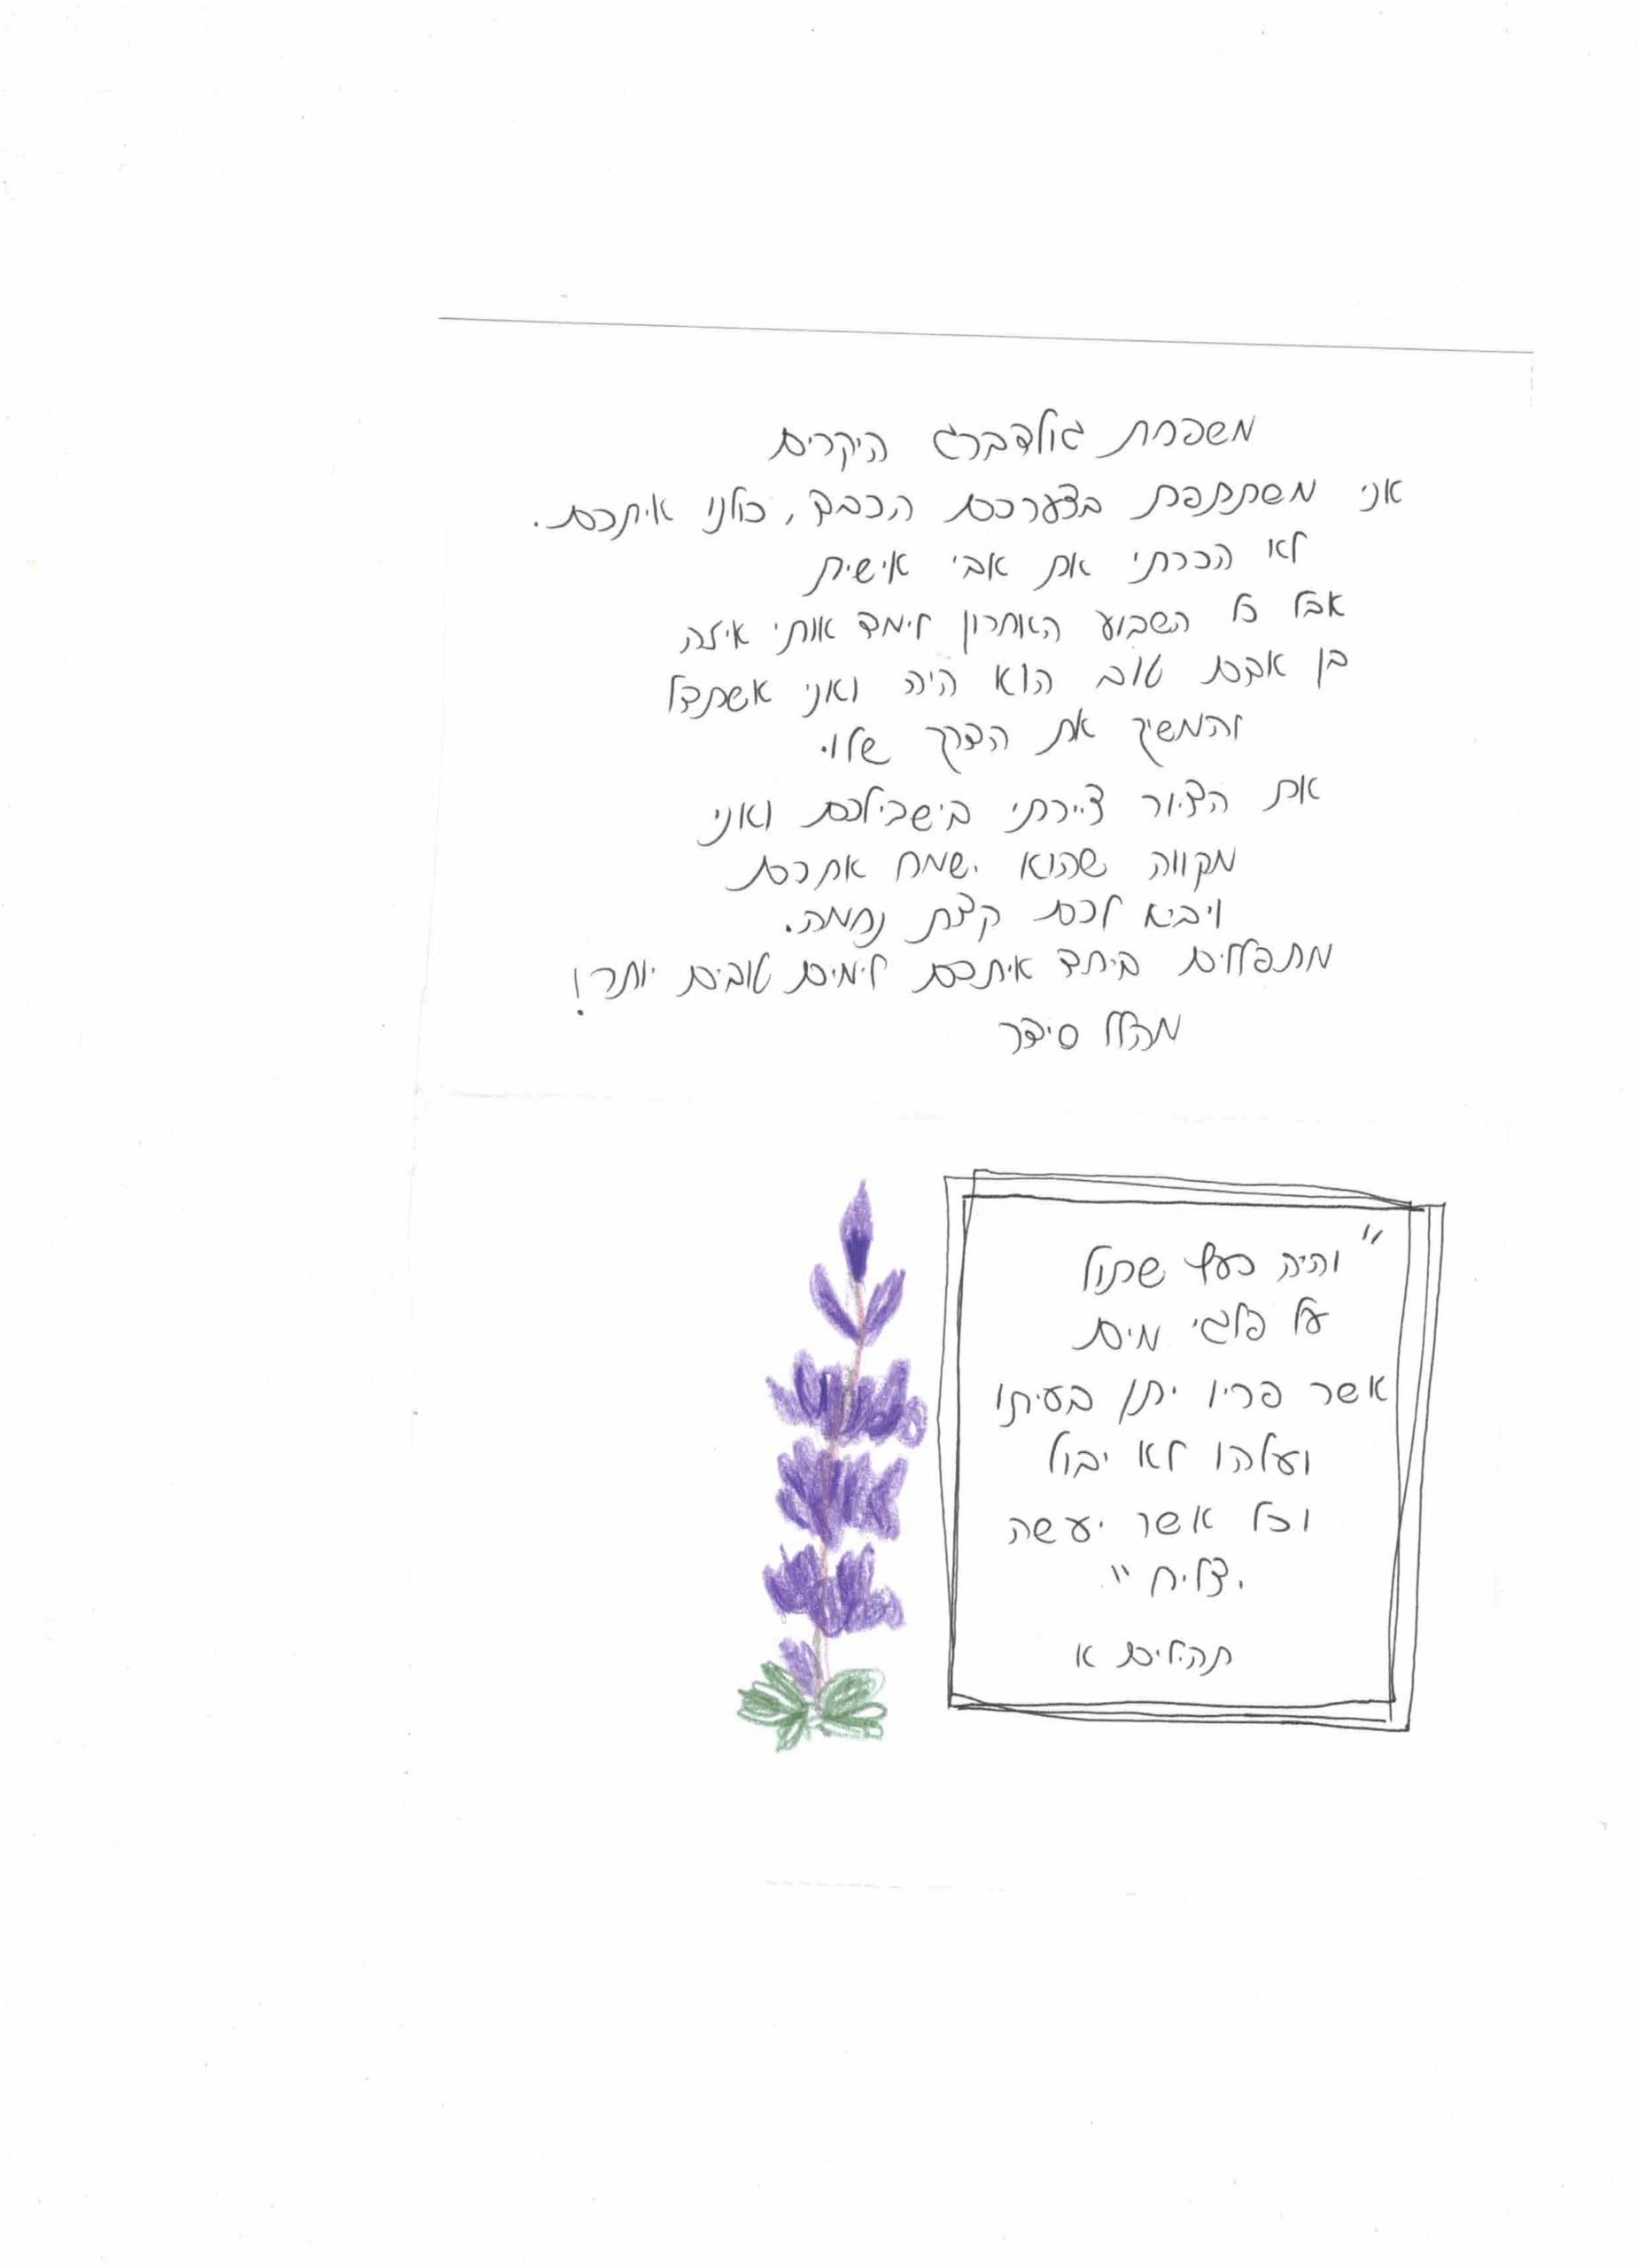 משפחת גולדברג היקרים
אני משתתפת בצערכם הכבד, כולנו איתכם.
לא הכרתי את אבי אישית
אבל כל השבוע האחרון לימד אותי איזה
בן אדם טוב הוא היה ואני אשתדל
להמשיך את הדרך שלו.
את הציור ציירתי בישבילכם ואני
מקווה שהוא ישמח אתכם
ויביא לכם קצת נחמה.
מתפללים ביחד איתכם לימים טובים יותר!
סיפר
"והיה כעץ שתול
על פלגי מים
אשר פריו יתן בעיתו
ועלהו לא יבול
וכל אשר יעשה
יצליח"
תהילים א